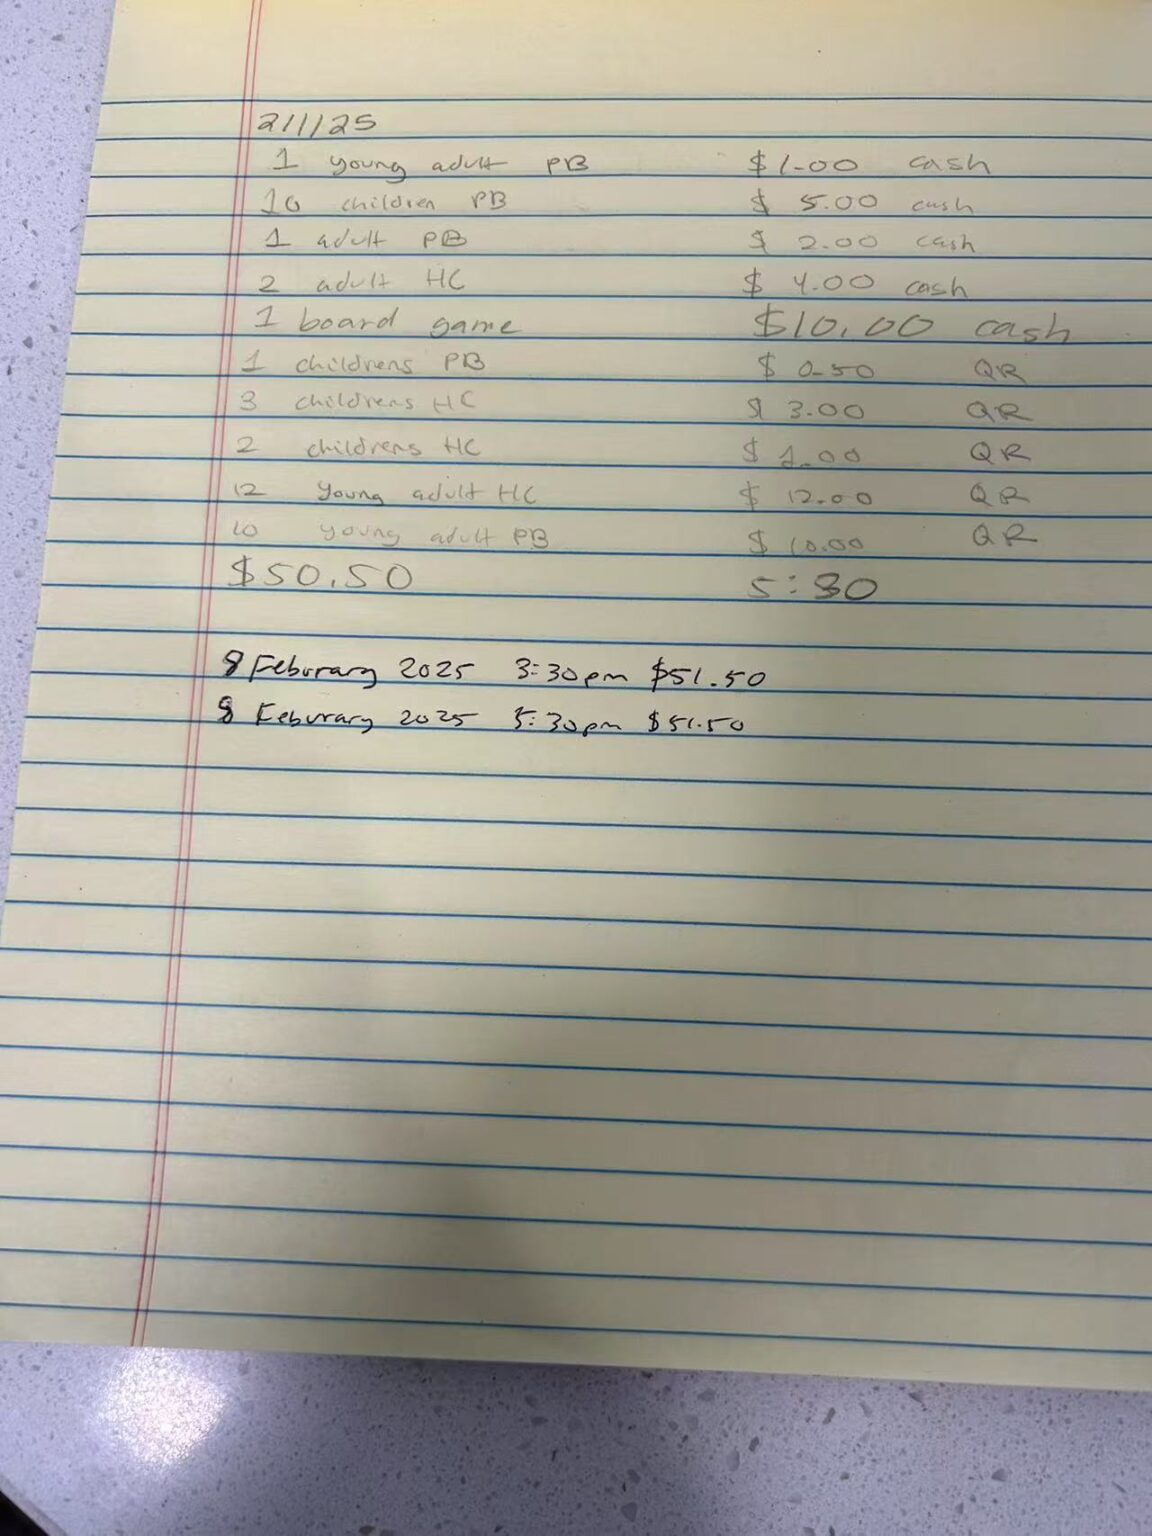 2/1/25
1 young adult PB $1.00 cash
10 children PB $5.00 cash
1 adult PB $2.00 cash
2 adult HC $4.00 cash
1 board game $10.00 cash
1 childrens PB $0.50 QR
3 childrens HC $3.00 QR
2 childrens HC $2.00 QR
12 young adult HC $12.00 QR
10 young adult PB $10.00 QR
$50.50 5:30
8 Feburary 2025 3:30pm $51.50
8 Feburary 2025 5:30pm $51.50